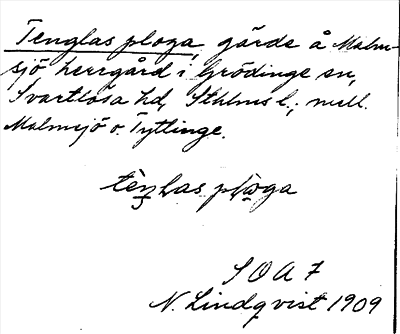 Tenglas ploga, gärde å Malm-
sjö herrgård i Grödinge sn,
Svartlösa hd, Sthlms l.; mell.
Malmsjö o. Tyttinge.
SOA 7
N. Lindqvist 1909